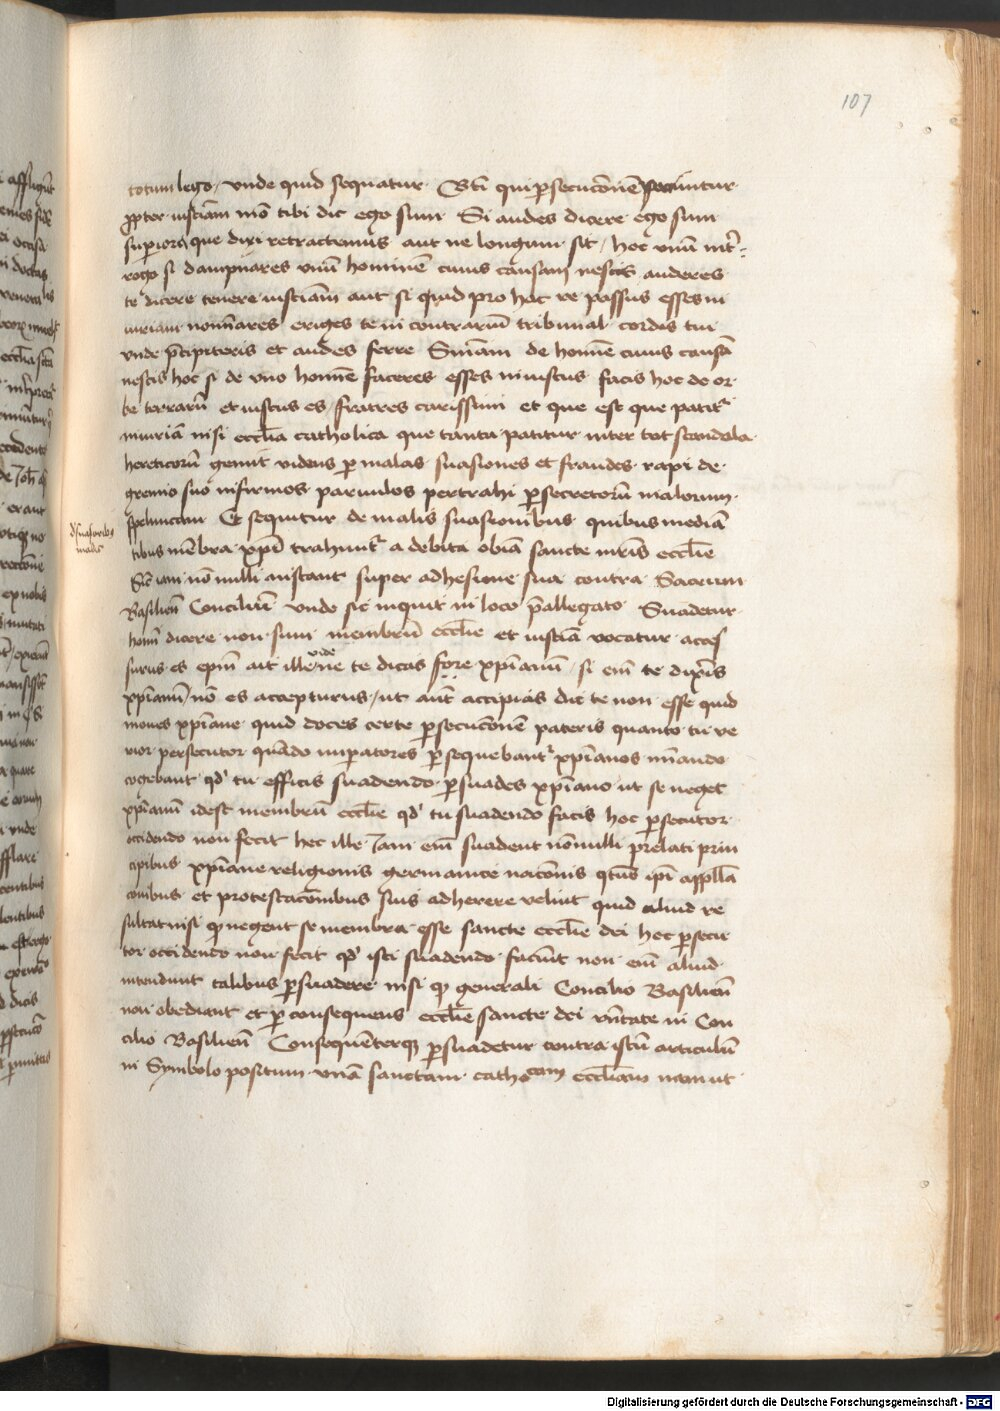 107
totum lego / vnde quid sequatur · Bti̅ qui p̲secuco̅ne̅ paciuntur
ꝓpter iusticia̅ mo̅ tibi dic ego sum Si audes dicere ego sum
sup̲iora que dixi retractemus aut ne longum sit / hoc vnu̅ int̅-
rogo si dampnares vnu̅ homine̅ cuius causam nescis auderes
te dicere tenere iusticia̅ aut si quid pro hac re passus esses in
iuriam no̅i̅ares eriges te in contrariu̅ tribunal cordis tui
vnde p̅cipiteris et audes ferre Sn̅iam de homi̅e cuius causa̅
nescis hoc si de vno homi̅e faceres esses iniustus facis hoc de or
be terraru̅ et iustus es / fratres carissimi et que est que patit᷑
iniuria̅ nisi eccl̅ia catholica que tanta patitur inter tot scandala
hereticoru̅ gemit videns p̲ malas suasiones et fraudes rapi de
gremio suo infirmos paruulos pertrahi p̲ secretoru̅ malorum
speluncam Et sequitur de malis suasionibus quibus media̅
tibus me̅bra xp̅i trahunt᷑ a debita obi̅a sancte mr̅is eccl̅ie
Sic iam no̅nulli instant super adhesione sua contra Sacrum
Basilien̅ Conciliu̅ vnde sic inquit in loco p̅allegato Suadetur
homi̅ dicere non sum membru̅ eccl̅ie et iusticia̅ vocatur acces
surus es ep̅m ait ille vide ne te dicas fore xp̅ianu̅ / si em̅ te dixeris
xp̅ianu̅ / no̅ es accepturus / ut aut̅ accipias dic te non esse quid
moues xp̅iane quid doces certe p̲secuco̅ne̅ pateris quanto tu ve
rior persecutor qua̅do imp̲atores p̲sequebant᷑ xp̅ianos mi̅ando
cogebant qd̕ tu efficis suadendo p̲suades xp̅iano ut se neget
xp̅ianu̅ idest membru̅ eccl̅ie qd̕ tu suadendo facis hoc p̲secutor
occidendo non fecit hec ille Iam em̅ suadent no̅nulli prelati prin
cipibus xp̅iane religionis germanice naco̅nis qt̅us ip̅i appll̅a
conibus et protestaco̅nibus suis adherere velint quid aliud re
sultat nisi ꝙ negent se membra esse sancte eccl̅ie dei hoc p̲secu
tor occidendo non fecit qd̕ isti suadendo faciu̅t non em̅ aliud
intendunt talibus p̲suadere nisi ꝙ generali Concilio Basilien̅
non obediant et p̲ consequens eccl̅ie sancte dei vni̅tate in Con
cilio Basilien̅ Conseque̅terqꝫ p̲suadetur contra istu̅ articulu̅
in Symbolo positum vna̅ sanctam cathocam eccl̅iam nam ut
d̕ suasoribus
malis
Digitalisierung gefördert durch die Deutsche Forschungsgemeinschaft - DFG